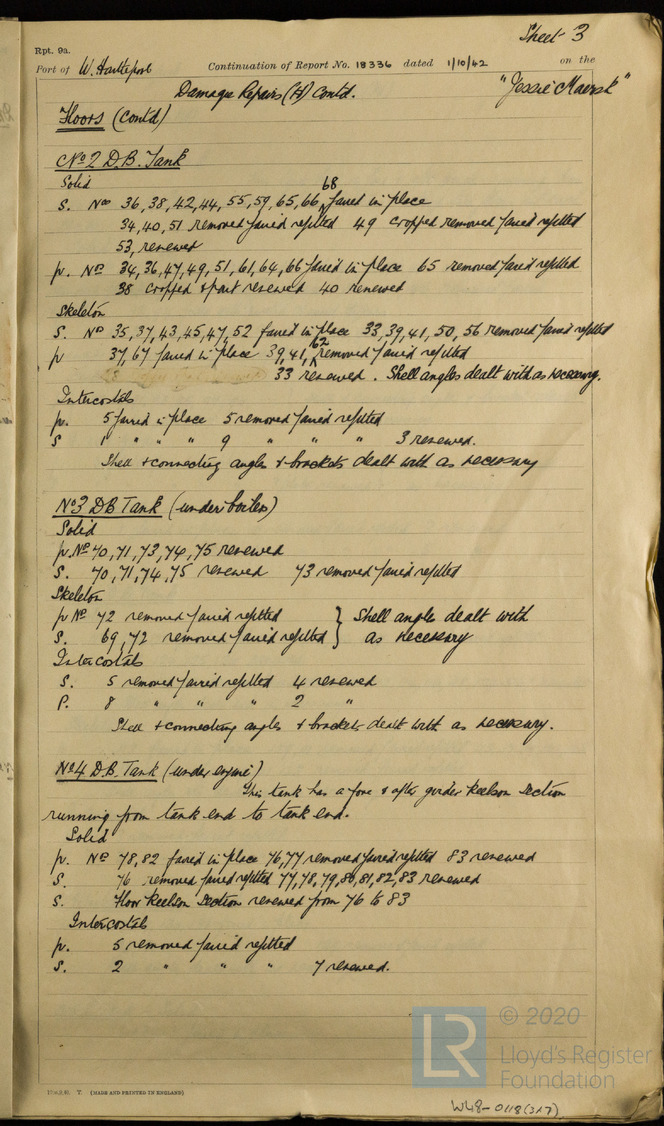 Sheet 3
Rpt. 9a.
Port of W. Hartlepool Continuation of Report No. 18336 dated 1/10/42 on the
"Jessie Maersk"
Damage Repairs (H) Contd.
Floors (contd)
No 2 D.B. Tank
Solid
S. Nos 36, 38, 42, 44, 55, 59, 65, 66, 68 faired in place
34, 40, 51 removed faired refitted 49 cropped removed faired refitted
53, renewed
p. No 34, 36, 47, 49, 51, 61, 64, 66 faired in place 65 removed faired refitted
38 cropped & part renewed 40 renewed
Skeleton
S. No 35, 37, 43, 45, 47, 52 faired in place 33, 39, 41, 50, 56 removed faired refitted
p 37, 67 faired in place 39, 41, 62 removed faired refitted
33 renewed. Shell angles dealt with as necessary.
Intercostals
p. 5 faired in place 5 removed faired refitted
S 1 " " " 9 " " " 3 renewed.
Shell & connecting angles & brackets dealt with as necessary
No 3 DB Tank (under boiler)
Solid
p. No 70, 71, 73, 74, 75 renewed
S. 70, 71, 74, 75 renewed 73 removed faired refitted
Skeleton
p No 72 removed faired refitted } Shell angles dealt with
S. 69, 72 removed faired refitted } as necessary
Intercostals
S. 5 removed faired refitted 4 renewed
P. 8 " " " 2 "
Shell & connecting angles & brackets dealt with as necessary.
No 4 D.B. Tank (under engine)
This tank has a fore & after girder keelson section
running from tank end to tank end.
Solid
p. No 78, 82 faired in place 76, 77 removed faired refitted 83 renewed
S. 76 removed faired refitted 77, 78, 79, 80, 81, 82, 83 renewed
S. Floor keelson section renewed from 76 to 83
Intercostals
p. 5 removed faired refitted
S. 2 " " " 7 renewed.
© 2020
LR
Lloyd's Register
Foundation
T. (MADE AND PRINTED IN ENGLAND)
W48-0118(3/7)